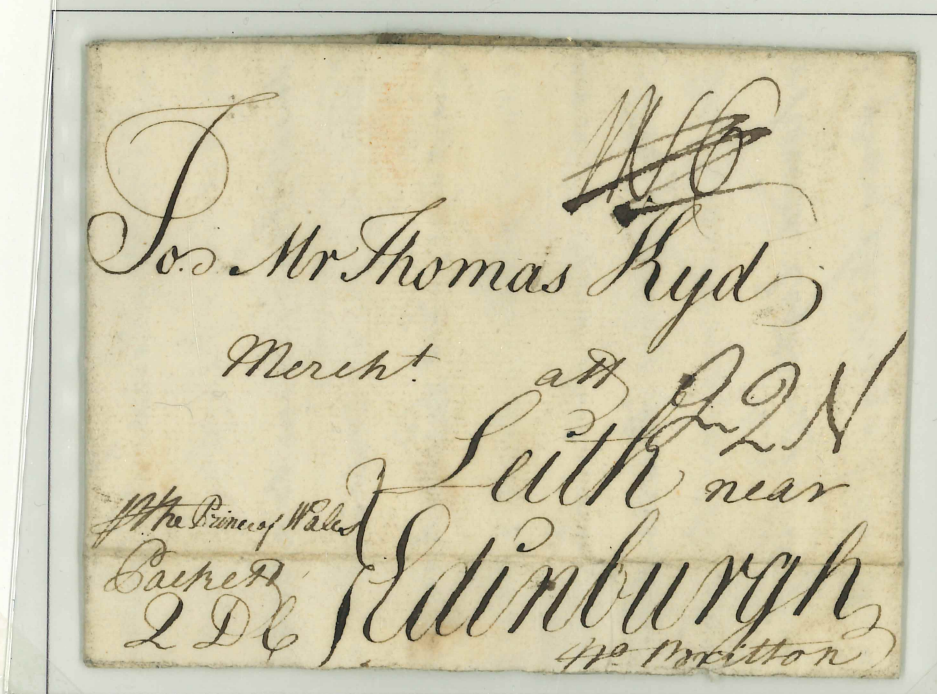 To Mr Thomas Kyd
Mercht. att
22 N
Leith near
Edinburgh
Britton
the Prince of Wales
Packett
2 Dl